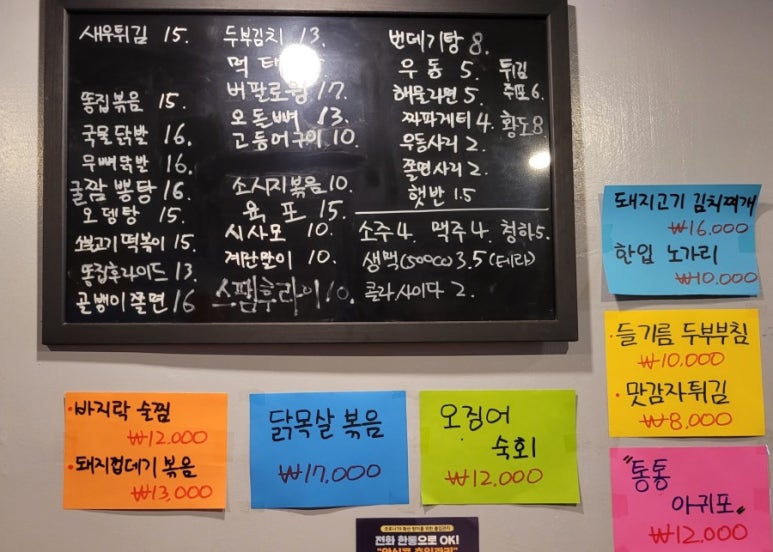 새우튀김 15.
똥집볶음 15.
국물닭발 16.
무뼈닭발 16.
굴짬뽕탕 16
오뎅탕 15.
쏘불고기떡볶이 15.
똥집후라이드 13.
골뱅이쫄면 16
두부김치 13.
먹태
버팔로윙 17.
오돌뼈 13.
고등어구이 10.
소시지볶음 10.
육포 15.
시사모 10.
계란말이 10.
스팸후라이 10.
번데기탕 8.
우동 5.
해물라면 5.
짜파게티 4.
우동사리 2.
쫄면사리 2.
햇반 1.5
튀김
쥐포 6.
황도 8
소주 4. 맥주 4. 청하 5.
생맥(500cc) 3.5 (테라)
콜라 사이다 2.
돼지고기 김치찌개
₩16,000
한입 노가리
₩10,000
· 들기름 두부부침
₩10,000
· 맛감자튀김
₩8,000
· 바지락 술찜
₩12,000
· 돼지껍데기 볶음
₩13,000
닭목살 볶음
₩17,000
오징어
숙회
₩12,000
"통통
아귀포"
₩12,000
전화 한통으로 OK!